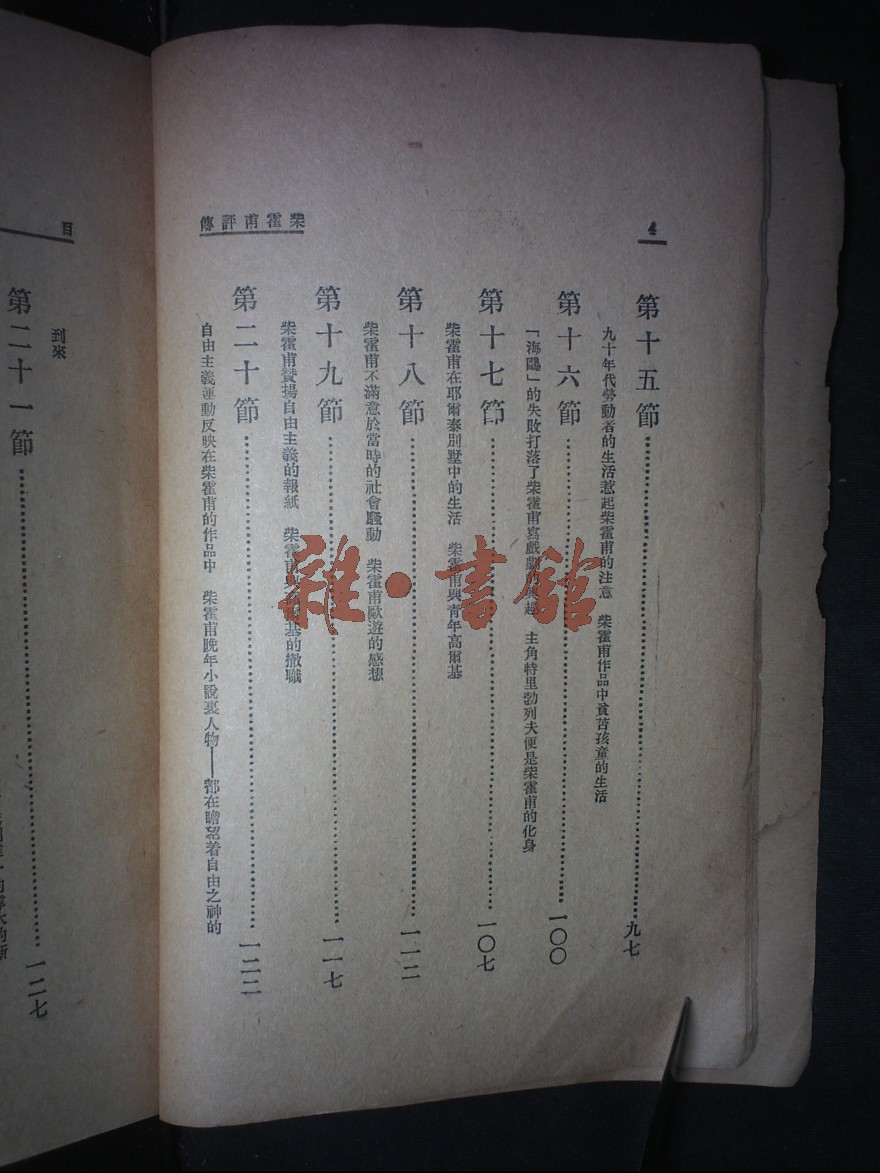 4
柴霍甫評傳
第十五節⋯⋯九七
九十年代勞動者的生活惹起柴霍甫的注意　柴霍甫作品中貧苦孩童的生活
第十六節⋯⋯一〇〇
「海鷗」的失敗打落了柴霍甫寫戲劇的　主角特里勃列夫便是柴霍甫的化身
第十七節⋯⋯一〇七
柴霍甫在耶爾泰別墅中的生活　柴霍甫與青年高爾基
第十八節⋯⋯一一二
柴霍甫不滿意於當時的社會騷動　柴霍甫歐遊的感想
第十九節⋯⋯一一七
柴霍甫贊揚自由主義的報紙　柴霍甫與高爾基的撤職
第二十節⋯⋯一二三
自由主義運動反映在柴霍甫的作品中　柴霍甫晚年小說裏人物——都在瞻望着自由之神的
目
到來
第二十一節⋯⋯一二七
雜·書館